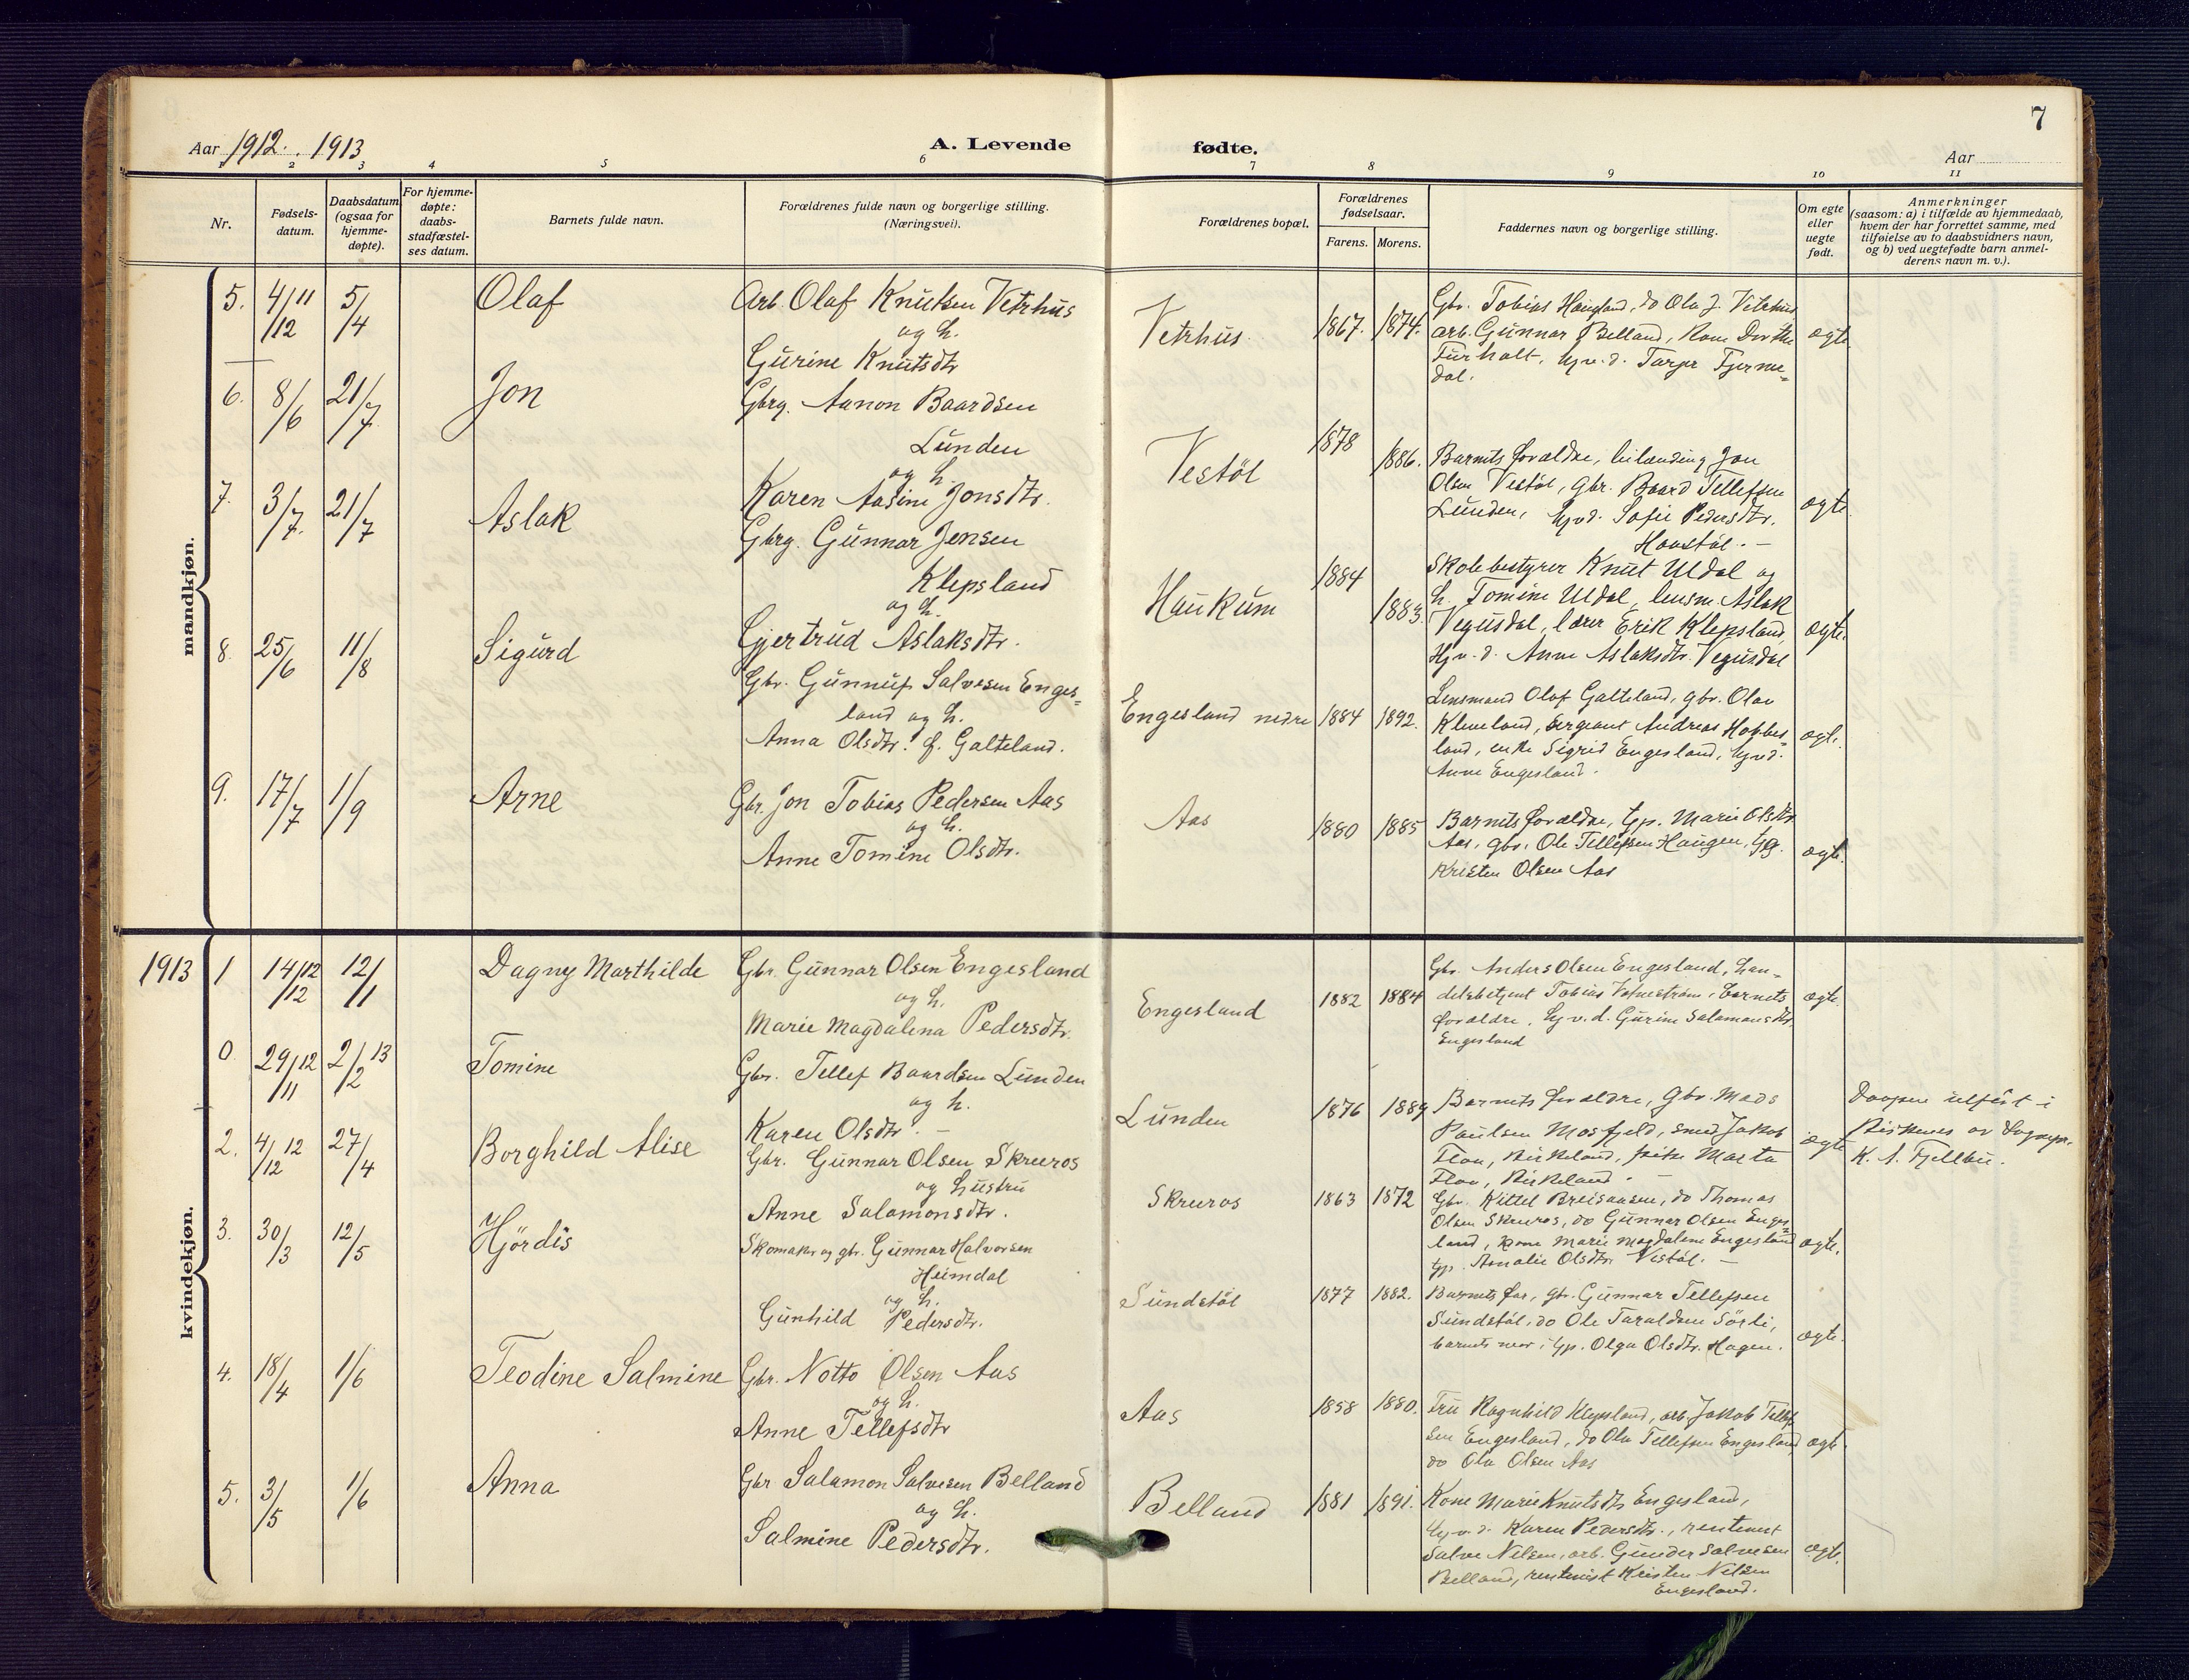 7
Aar 1912. 1913
A. Levende
fødte.
Aar
1 2 3 4 5 6 7 8 9 10 11
Nr.
Fødsels-
datum.
Daabsdatum
(ogsaa for
hjemme-
døpte).
For hjemme-
døpte:
daabs-
stadfæstel-
ses datum.
Barnets fulde navn.
Forældrenes fulde navn og borgerlige stilling.
(Næringsvei).
Forældrenes bopæl.
Forældrenes
fødselsaar.
Farens. Morens.
Faddernes navn og borgerlige stilling.
Om egte
eller
uegte
født.
Anmerkninger
(saasom: a) i tilfælde av hjemmedaab,
hvem der har forrettet samme, med
tilføielse av to daabsvidners navn,
og b) ved uegtefødte barn anmel-
derens navn m. v.).
mandkjøn.
5. 4/11 /12 5/4 Olaf
Arb. Olaf Knutsen Vetrhus
og h.
Gurine Knutsdtr
Vetrhus. 1867. 1874.
Gbr. Tobias Haugland, do Ola J. Vetrhus
arb. Gunnar Belland, Kone Dorthe
Furholt, hjv. d. Tarjer Fjerme-
dal.
ægte
6. 8/6 21/7 Jon
Gbrg. Aanon Baardsen
Lunden
og h.
Karen Aasine Jonsdtr.
Vestöl 1878 1886.
Barnets forældre, Jon
Olsen Vestöl, gbr. Baard Tellefsen
Lunden, hjvd. Sofie Pedersdtr.
Haastöl. -
ægte.
7. 3/7. 21/7 Aslak
Gbrg. Gunnar Jensen
Klepsland
og h.
Gjertrud Aslaksdtr.
Haukum 1884 1883.
Skolebestyrer Knut Uldal og
h. Tomine Uldal, lensm. Aslak
Vegusdal, lærer Erik Klepsland,
Hjv. d. Anne Aslaksdtr. Vegusdal
ægte.
8. 25/6 11/8 Sigurd
Gbr. Gunnuf Salvesen Enges-
land og h.
Anna Olsdtr. f. Galteland.
Engesland nedre 1884 1892.
Lensmand Olaf Galteland, gbr. Olav
Kleveland, Sergeant Andreas Hobbes-
land, enke Sigrid Engesland, hjvd.
Anne Engesland.
ægte.
9. 17/7 1/9 Arne
Gbr. Jon Tobias Pedersen Aas
og h.
Anne Tomine Olsdtr.
Aas 1880 1885
Barnets forældre, tjp. Marie Olsdtr
Aas, gbr. Ole Tellefsen Haugen, tjg.
Kristen Olsen Aas
ægte.
kvindekjøn.
1913 1 14/12 /12 12/1 Dagny Marthilde
Gbr. Gunnar Olsen Engesland
og h.
Marie Magdalena Pedersdtr.
Engesland 1882 1884
Gbr. Anders Olsen Engesland, han-
delsbetjent Tobias Vatnestrøm, barnets
forældre, hjv. d. Gurine Salamonsdtr.
Engesland
ægte.
0. 29/12 /11 2/13 /2 Tomine
Gbr. Tellef Baardsen Lunden
og h.
Karen Olsdtr. -
Lunden 1876 1889
Barnets forældre, Gbr. Mads
Paulsen Mosfjeld, smed Jakob
Flaa, Birkeland, Marta
Flaa, Birkeland. -
ægte
Daapen utført i
Birkenes av Sogepr.
K. A. Fjellbu.
2. 4/12 /12 27/4 Borghild Alise
Gbr. Gunnar Olsen Skreros
og hustru
Anne Salamonsdtr.
Skreros 1863 1872
Gbr. Kittel Breisaasen, do Thomas
Olsen Skreros, do Gunnar Olsen Enges-
land, kone Marie Magdalene Engesland
tjp. Amalie Olsdtr. Vestöl. -
ægte.
3. 30/3 12/5 Hjördis
Skomaker og gbr. Gunnar Halvorsen
Heimdal
og h.
Gunhild Pedersdtr.
Sundstöl 1877 1882.
Barnets far, gbr. Gunnar Tellefsen
Sundstöl, do Ole Taraldsen Sörli,
barnets mor, tjp. Olga Olsdtr. Hagen.
ægte.
4. 18/4 1/6 Teodine Salmine
Gbr. Notto Olsen Aas
og h.
Anne Tellefsdtr
Aas 1858 1880.
Fru Ragnhild Klepsland, arb. Jakob Tellef-
sen Engesland, do Ola Tellefsen Engesland,
do Ola Olsen Aas
ægte
5. 3/5 1/6 Anna
Gbr Salamon Salvesen Belland
og h.
Salmine Pedersdtr.
Belland 1881 1891.
Kone Marie Knutsdtr Engesland,
hjv. d. Karen Pedersdtr., rentenist
Salve Nilsen, arb. Gunder Salvesen
Belland, rentenist Kristen Nilsen
Engesland.
ægte.